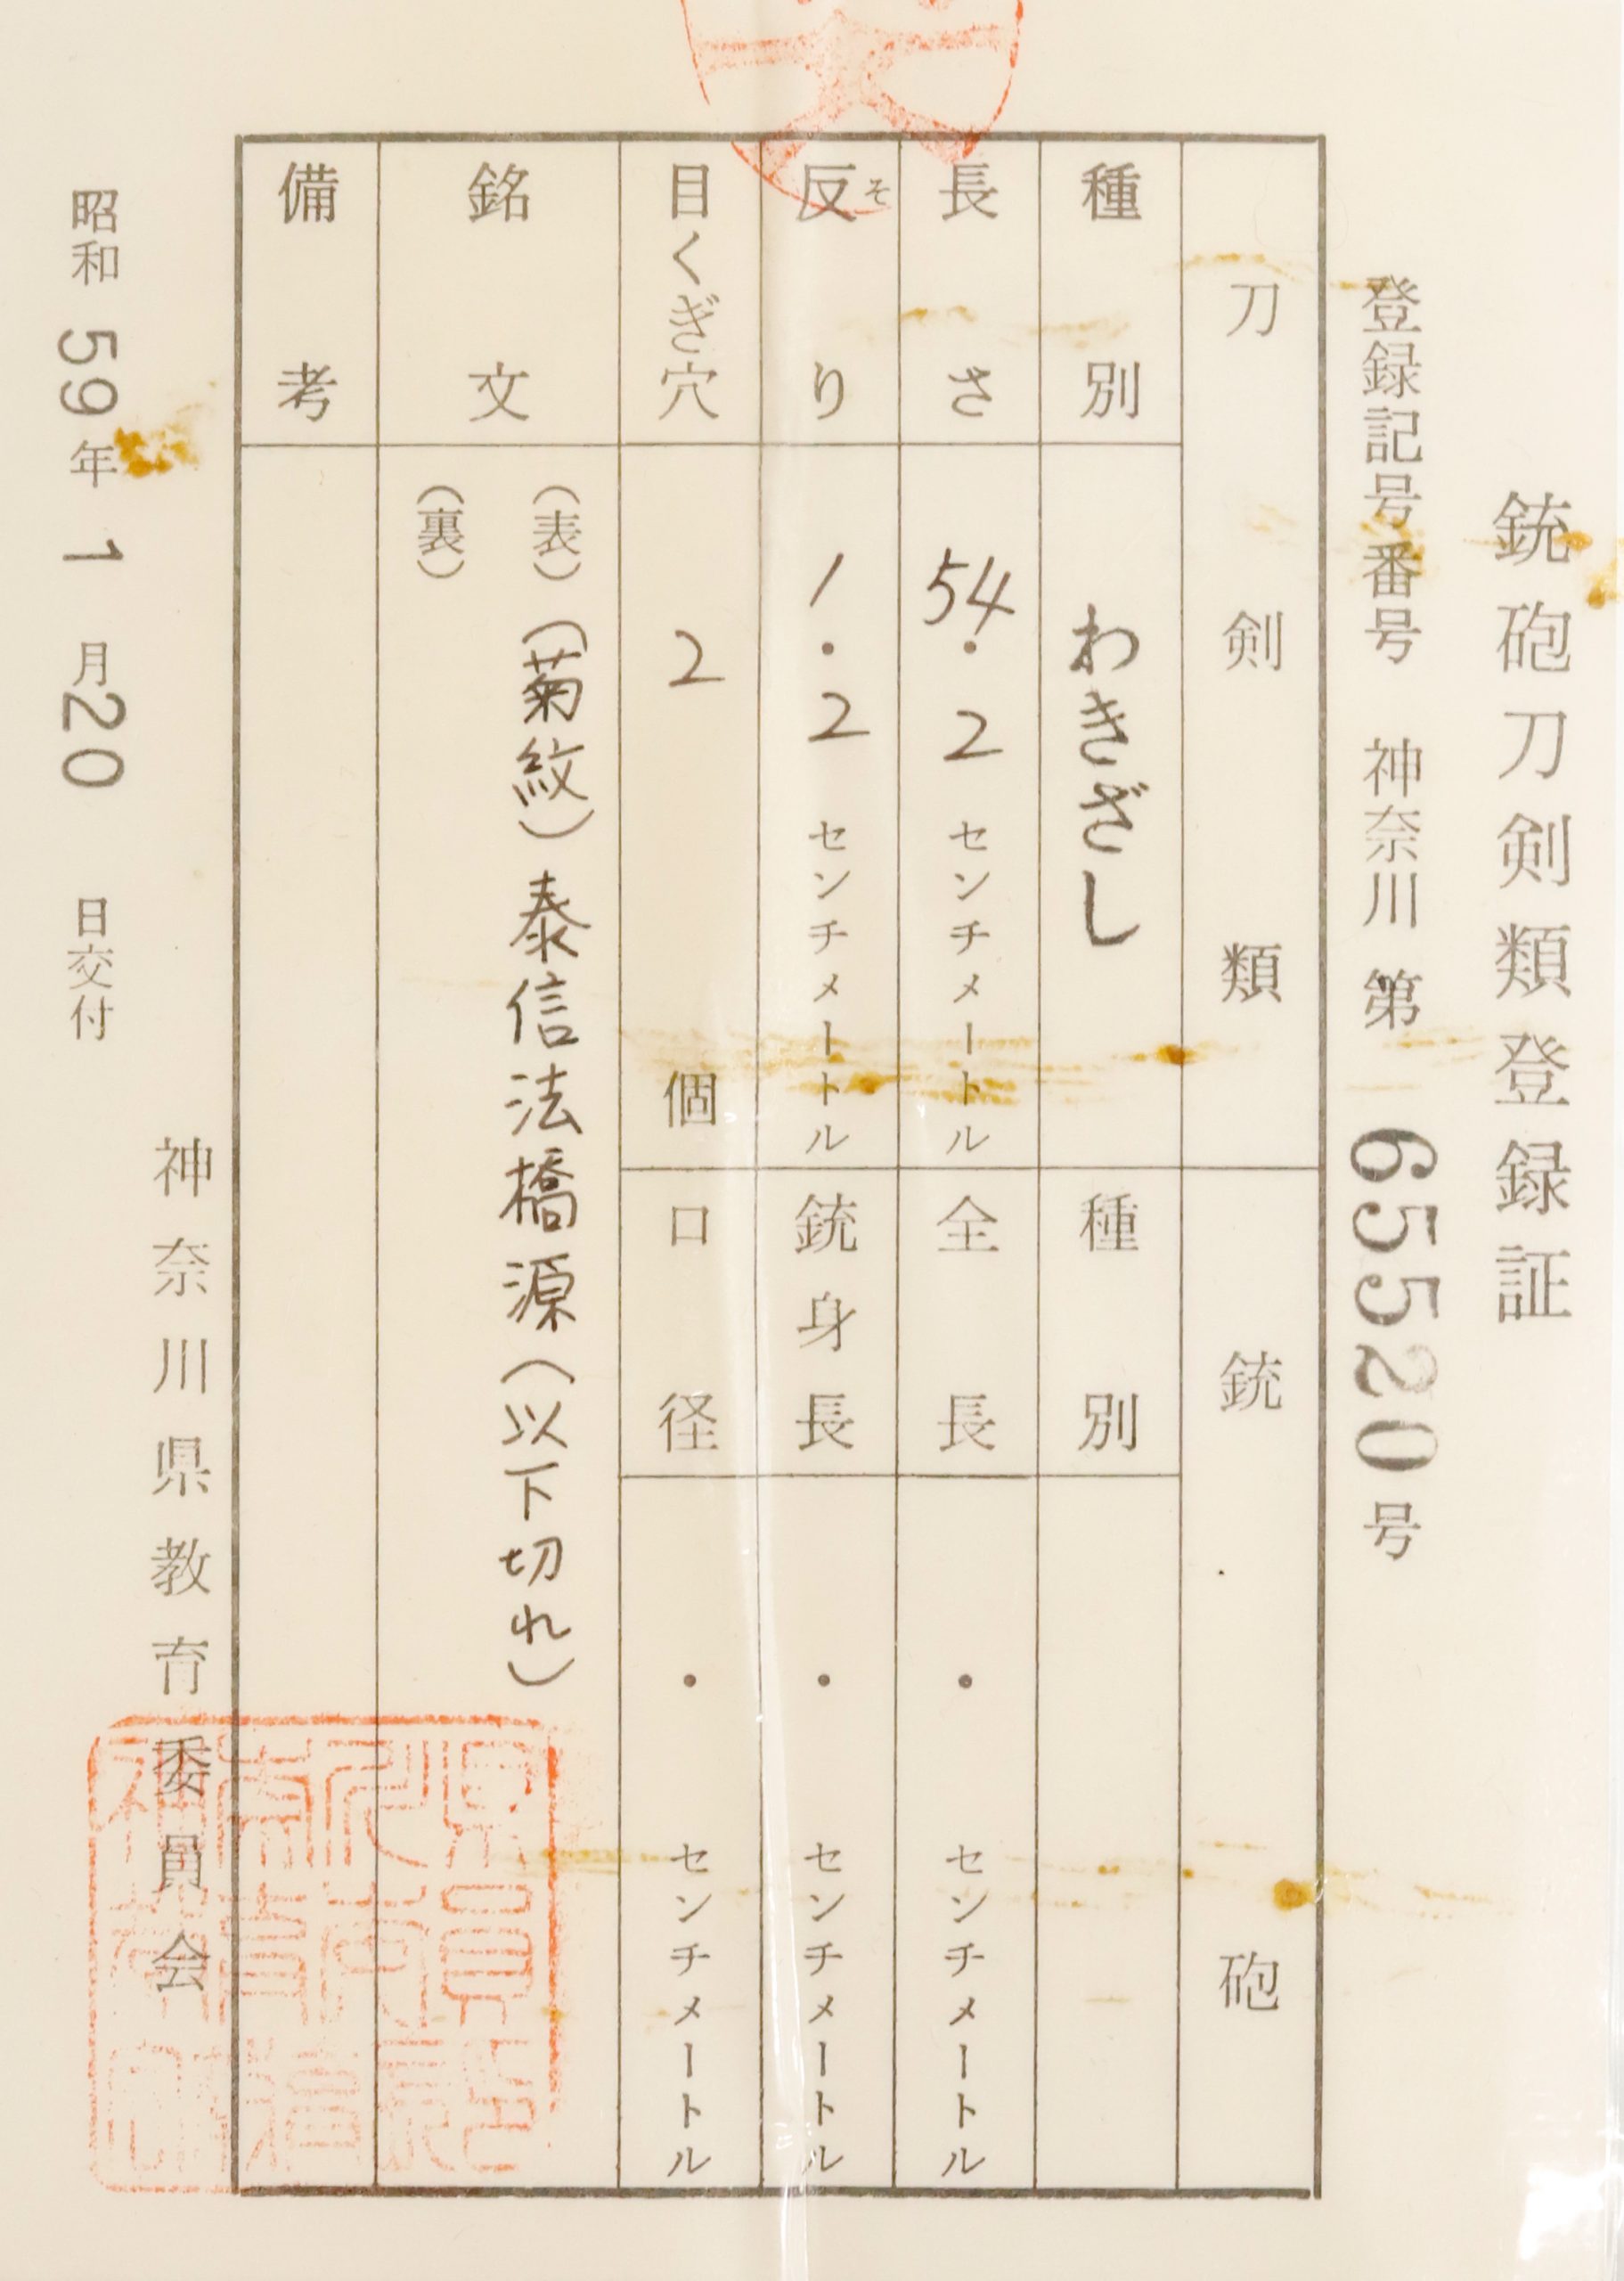 銃砲刀剣類登録証
登録記号番号 神奈川 第 65520 号
刀剣類
種別 わきざし
長さ 54.2 センチメートル
反り そ 1.2 センチメートル
目くぎ穴 2 個
銘文
(表) (菊紋) 泰信法橋源 (以下切れ)
(裏)
備考
銃砲
種別
全長 ・ センチメートル
銃身長 ・ センチメートル
口径 ・ センチメートル
神奈川県教育委員会
昭和 59 年 1 月 20 日交付